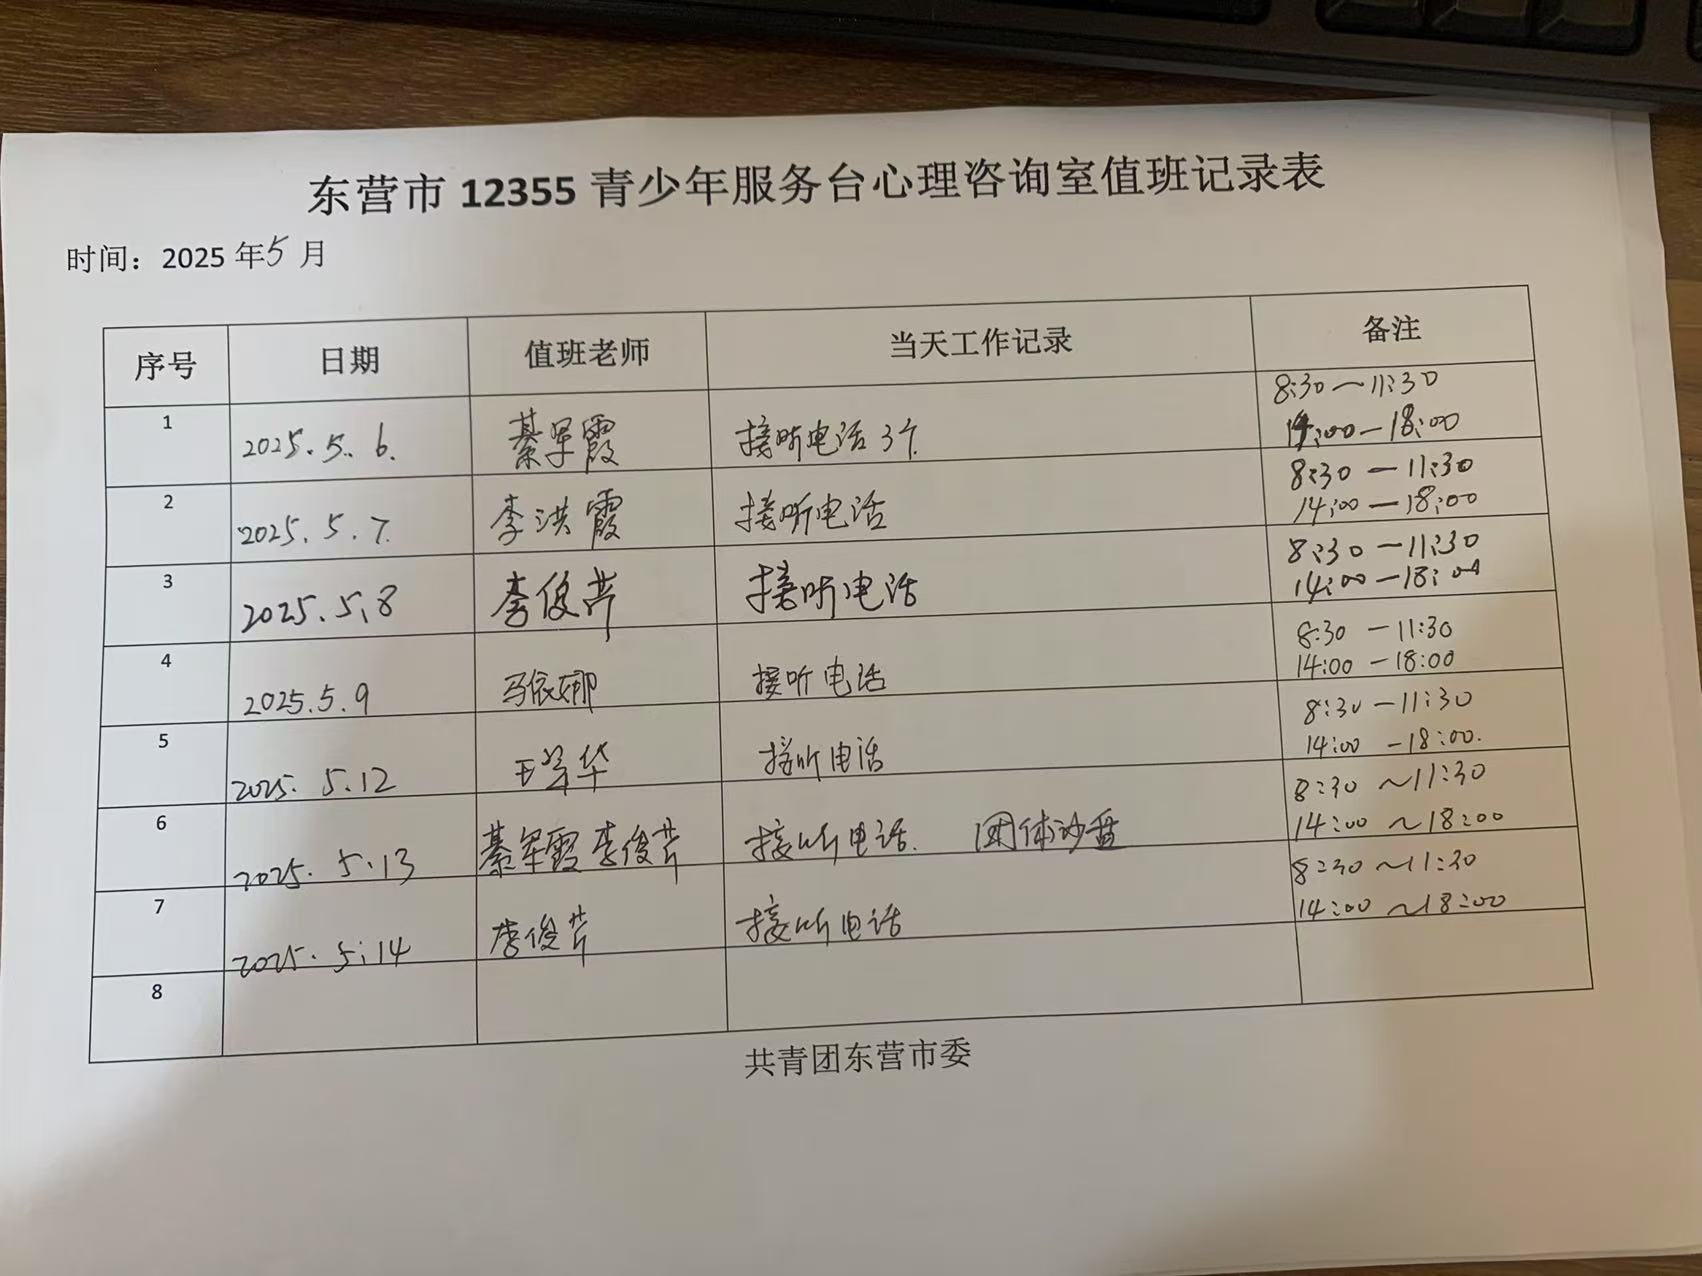 东营市 12355 青少年服务台心理咨询室值班记录表
时间：2025 年 5 月
序号 日期 值班老师 当天工作记录 备注
1 2025.5.6. 綦军霞 接听电话 3个 8:30～11:30
14:00—18:00
2 2025.5.7. 李洪霞 接听电话 8:30—11:30
14:00—18:00
3 2025.5.8 李俊芹 接听电话 8:30—11:30
14:00—18:00
4 2025.5.9 马依娜 接听电话 8:30—11:30
14:00—18:00
5 2025.5.12 华 接听电话 8:30—11:30
14:00—18:00.
6 2025.5.13 綦军霞 李俊芹 接听电话. 团体沙盘 8:30～11:30
14:00～18:00
7 2025.5.14 李俊芹 接听电话 8:30～11:30
14:00～18:00
8
共青团东营市委